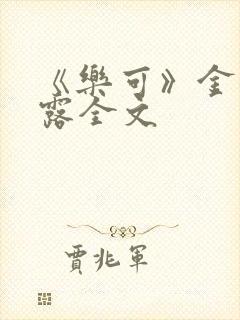 《樂可》金
露全文
賈兆軍